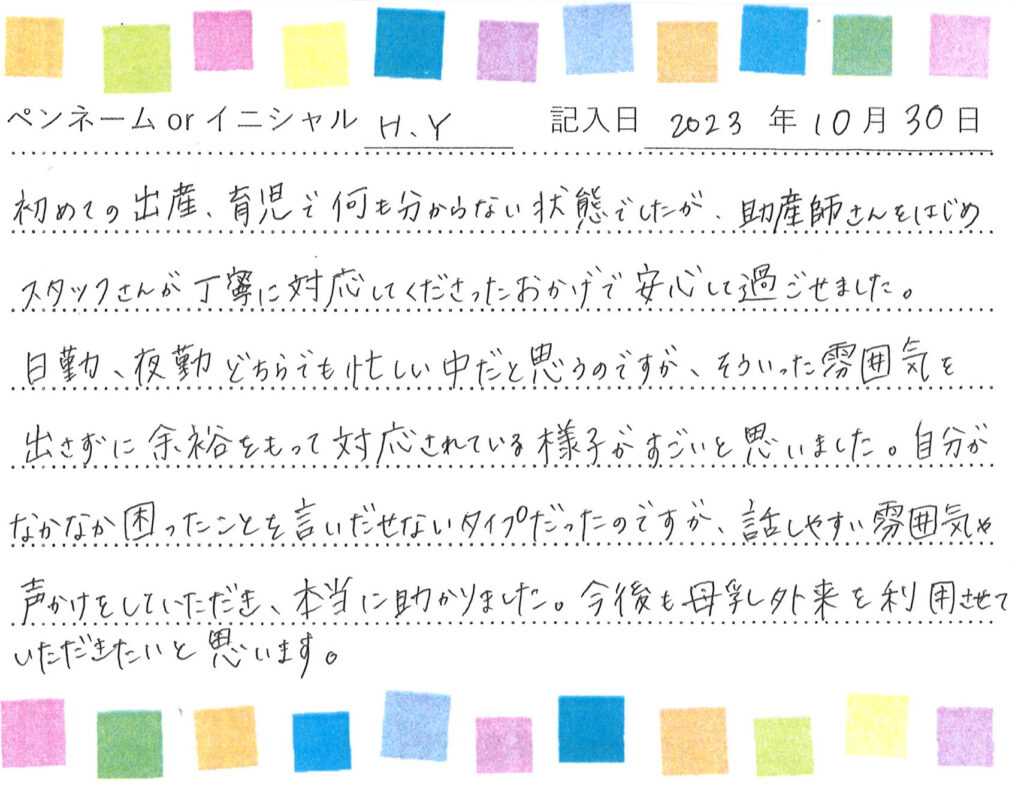 ペンネーム or イニシャル H.Y 記入日 2023 年 10 月 30 日
初めての出産、育児で何も分からない状態でしたが、助産師さんをはじめ
スタッフさんが丁寧に対応してくださったおかげで安心して過ごせました。
日勤、夜勤どちらでも忙しい中だと思うのですが、そういった雰囲気を
出さずに余裕をもって対応されている様子がすごいと思いました。自分が
なかなか困ったことを言いだせないタイプだったのですが、話しやすい雰囲気や
声かけをしていただき、本当に助かりました。今後も母乳外来を利用させて
いただきたいと思います。